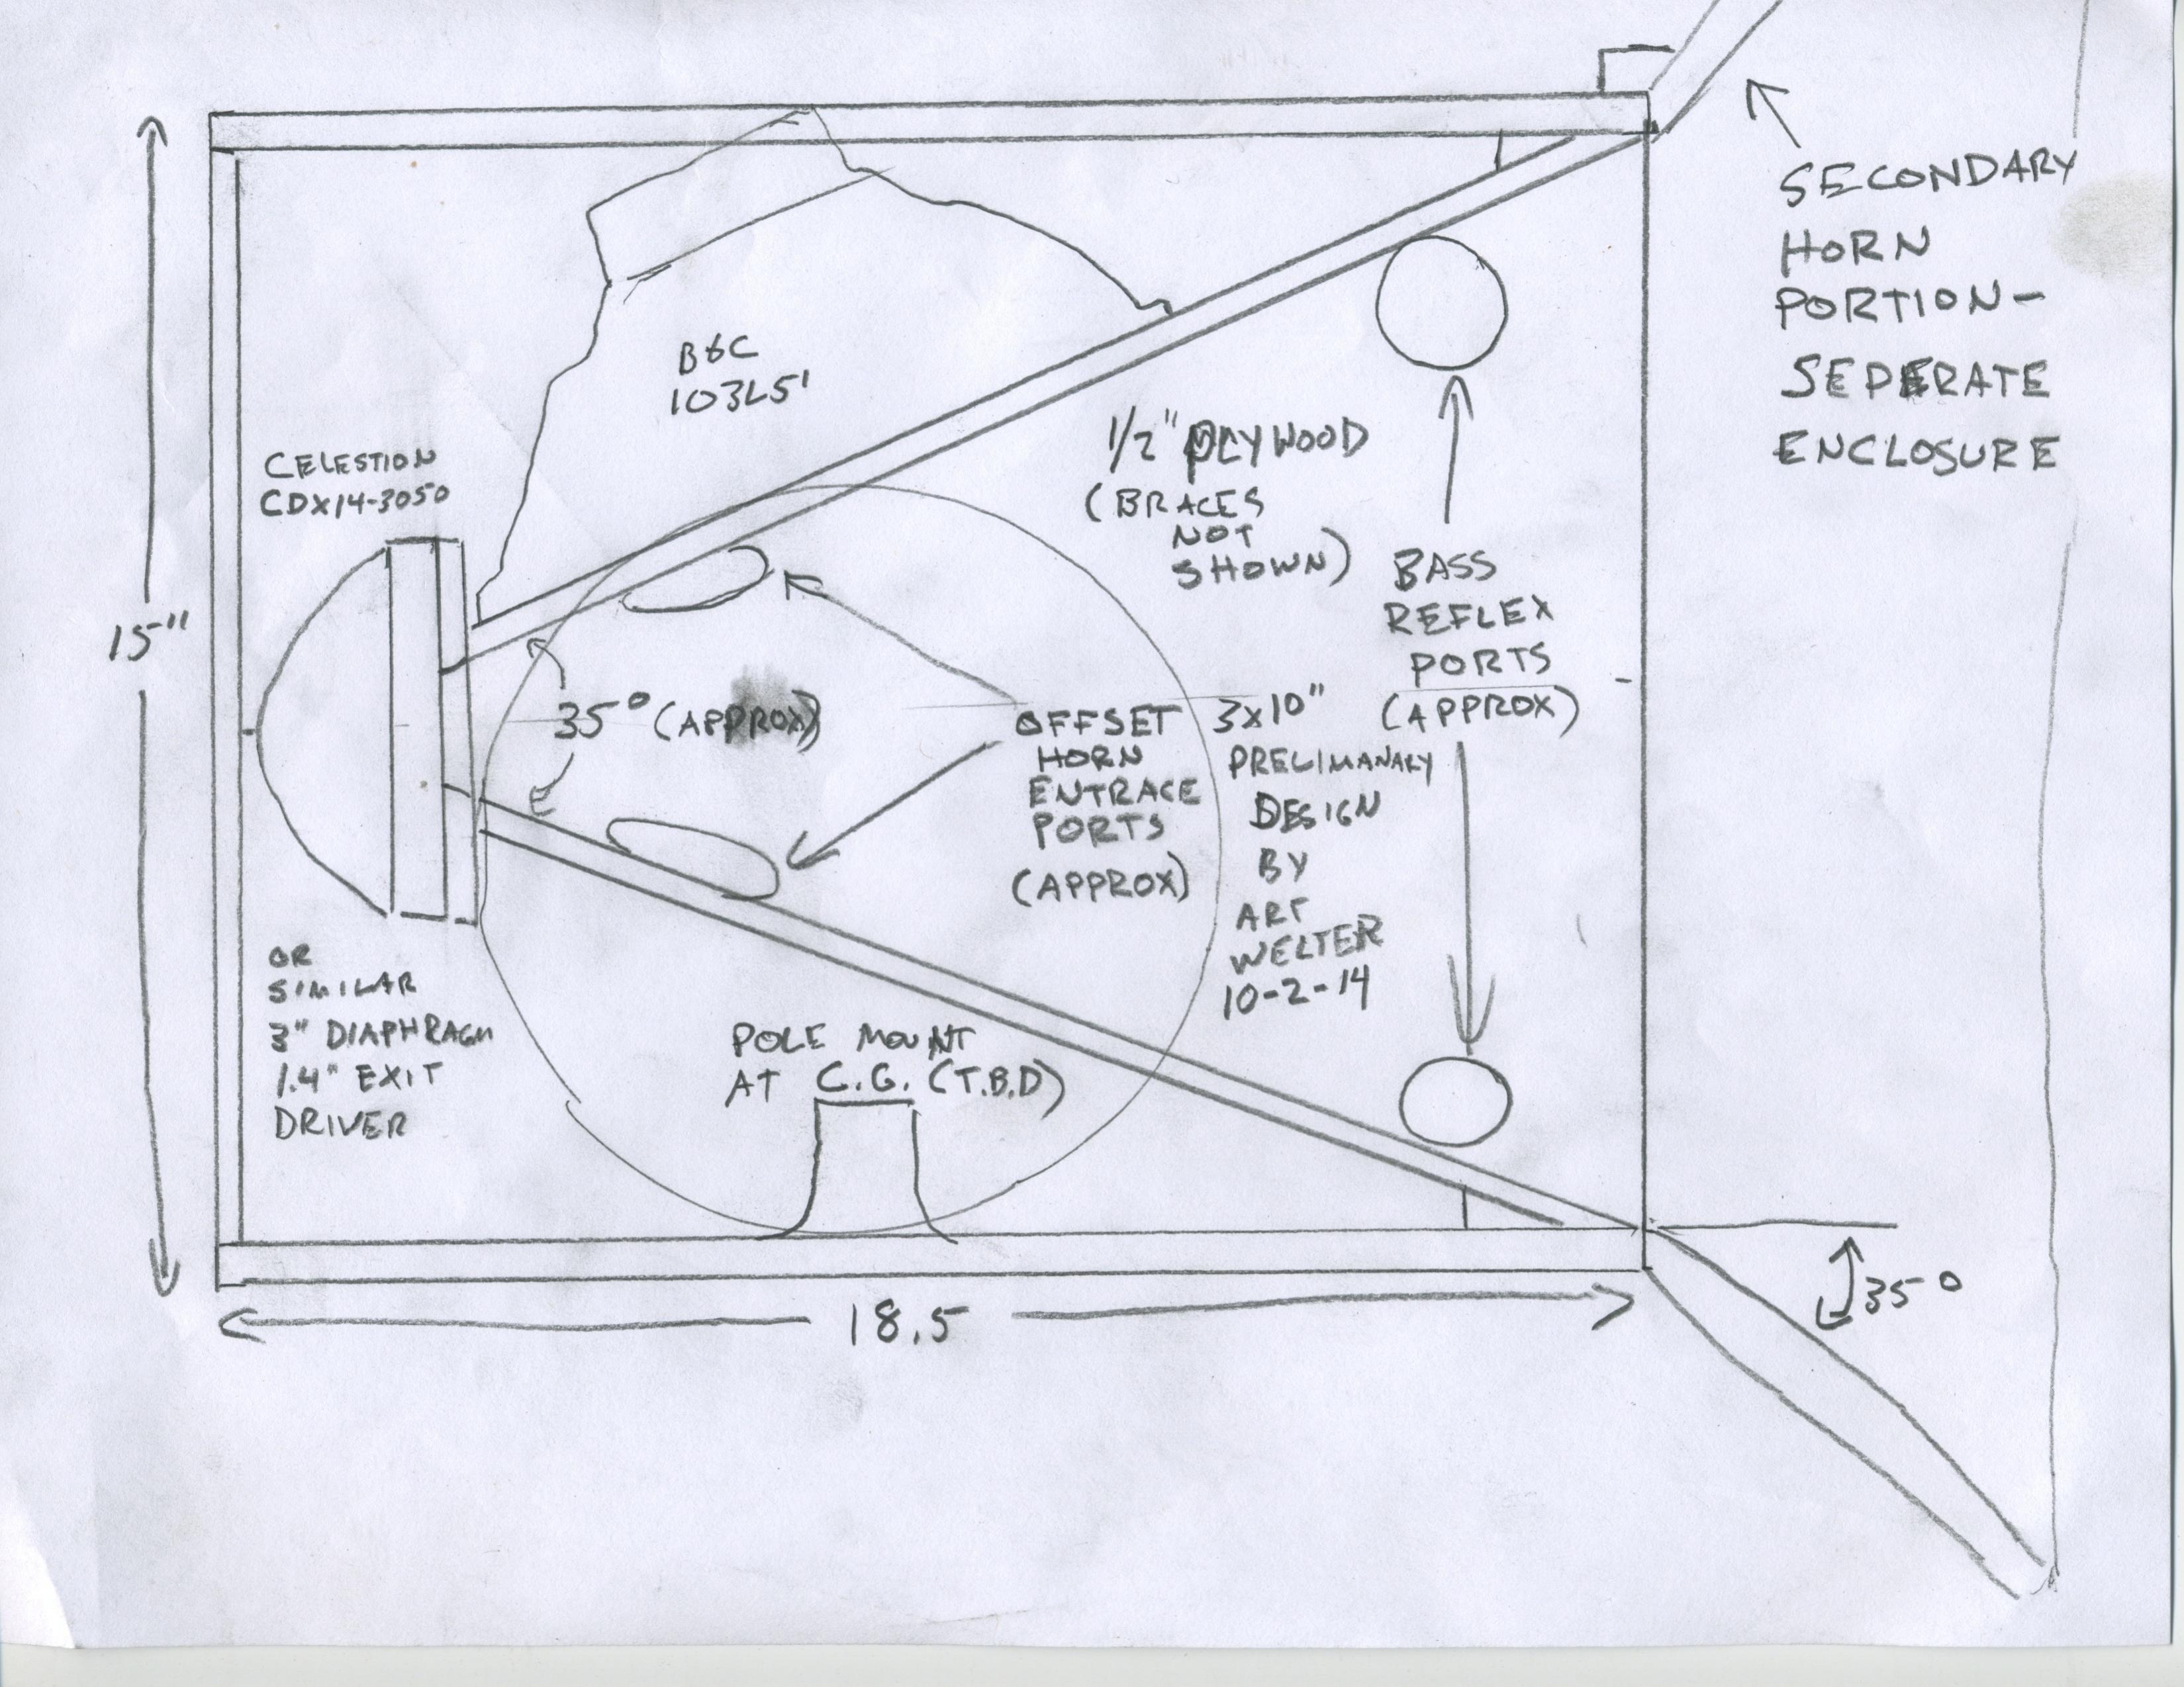 SECONDARY
HORN
PORTION-
SEPERATE
ENCLOSURE
B&C
103LS'
CELESTION
CDX14-3050
1/2" PLYWOOD
(BRACES
NOT
SHOWN)
BASS
REFLEX
PORTS
(APPROX)
15"
35° (APPROX)
OFFSET
HORN
ENTRACE
PORTS
(APPROX)
3x10"
PRELIMANARY
DESIGN
BY
ART
WELTER
10-2-14
OR
SIMILAR
3" DIAPHRAGM
1.4" EXIT
DRIVER
POLE MOUNT
AT C.G. (T.B.D)
35°
18.5